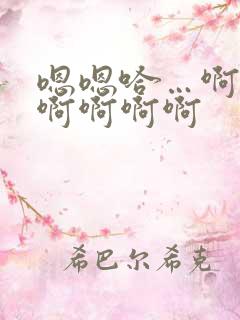 嗯嗯哈…啊
啊啊啊啊
希巴尔希克